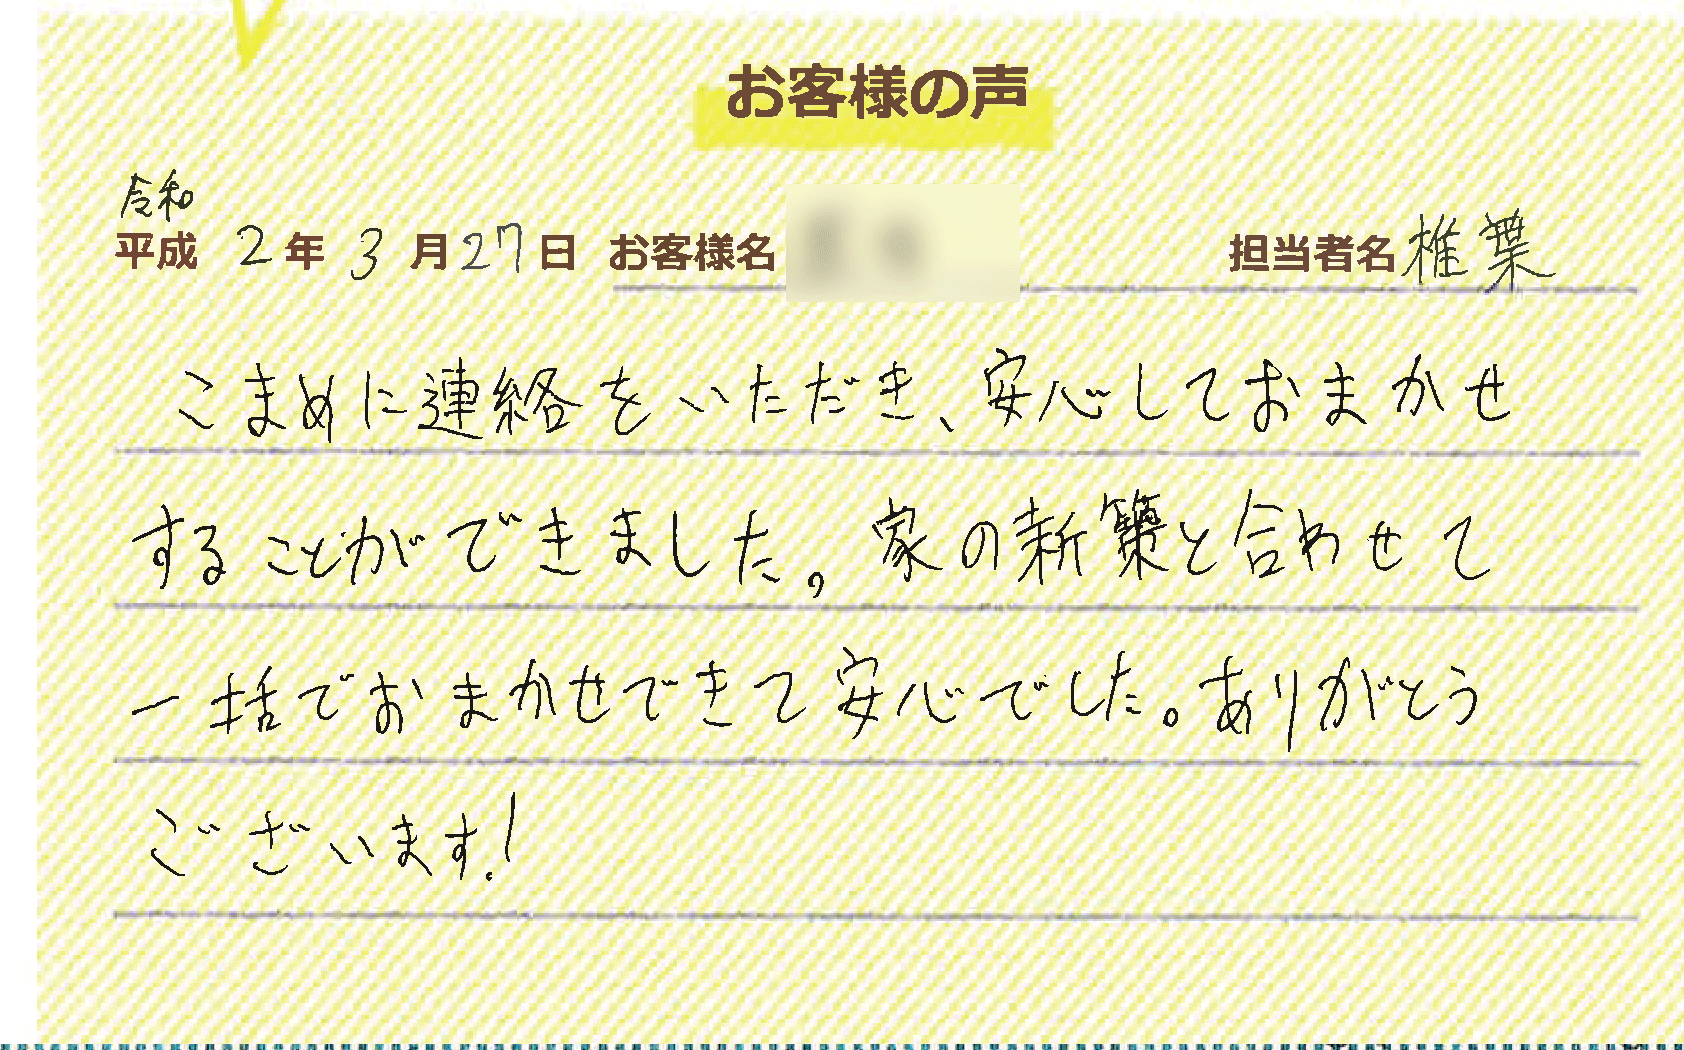 お客様の声
令和
平成 2年 3月27日 お客様名 担当者名 椎葉
こまめに連絡をいただき、安心しておまかせ
することができました。家の新築と合わせて
一括でおまかせできて安心でした。ありがとう
ございます!